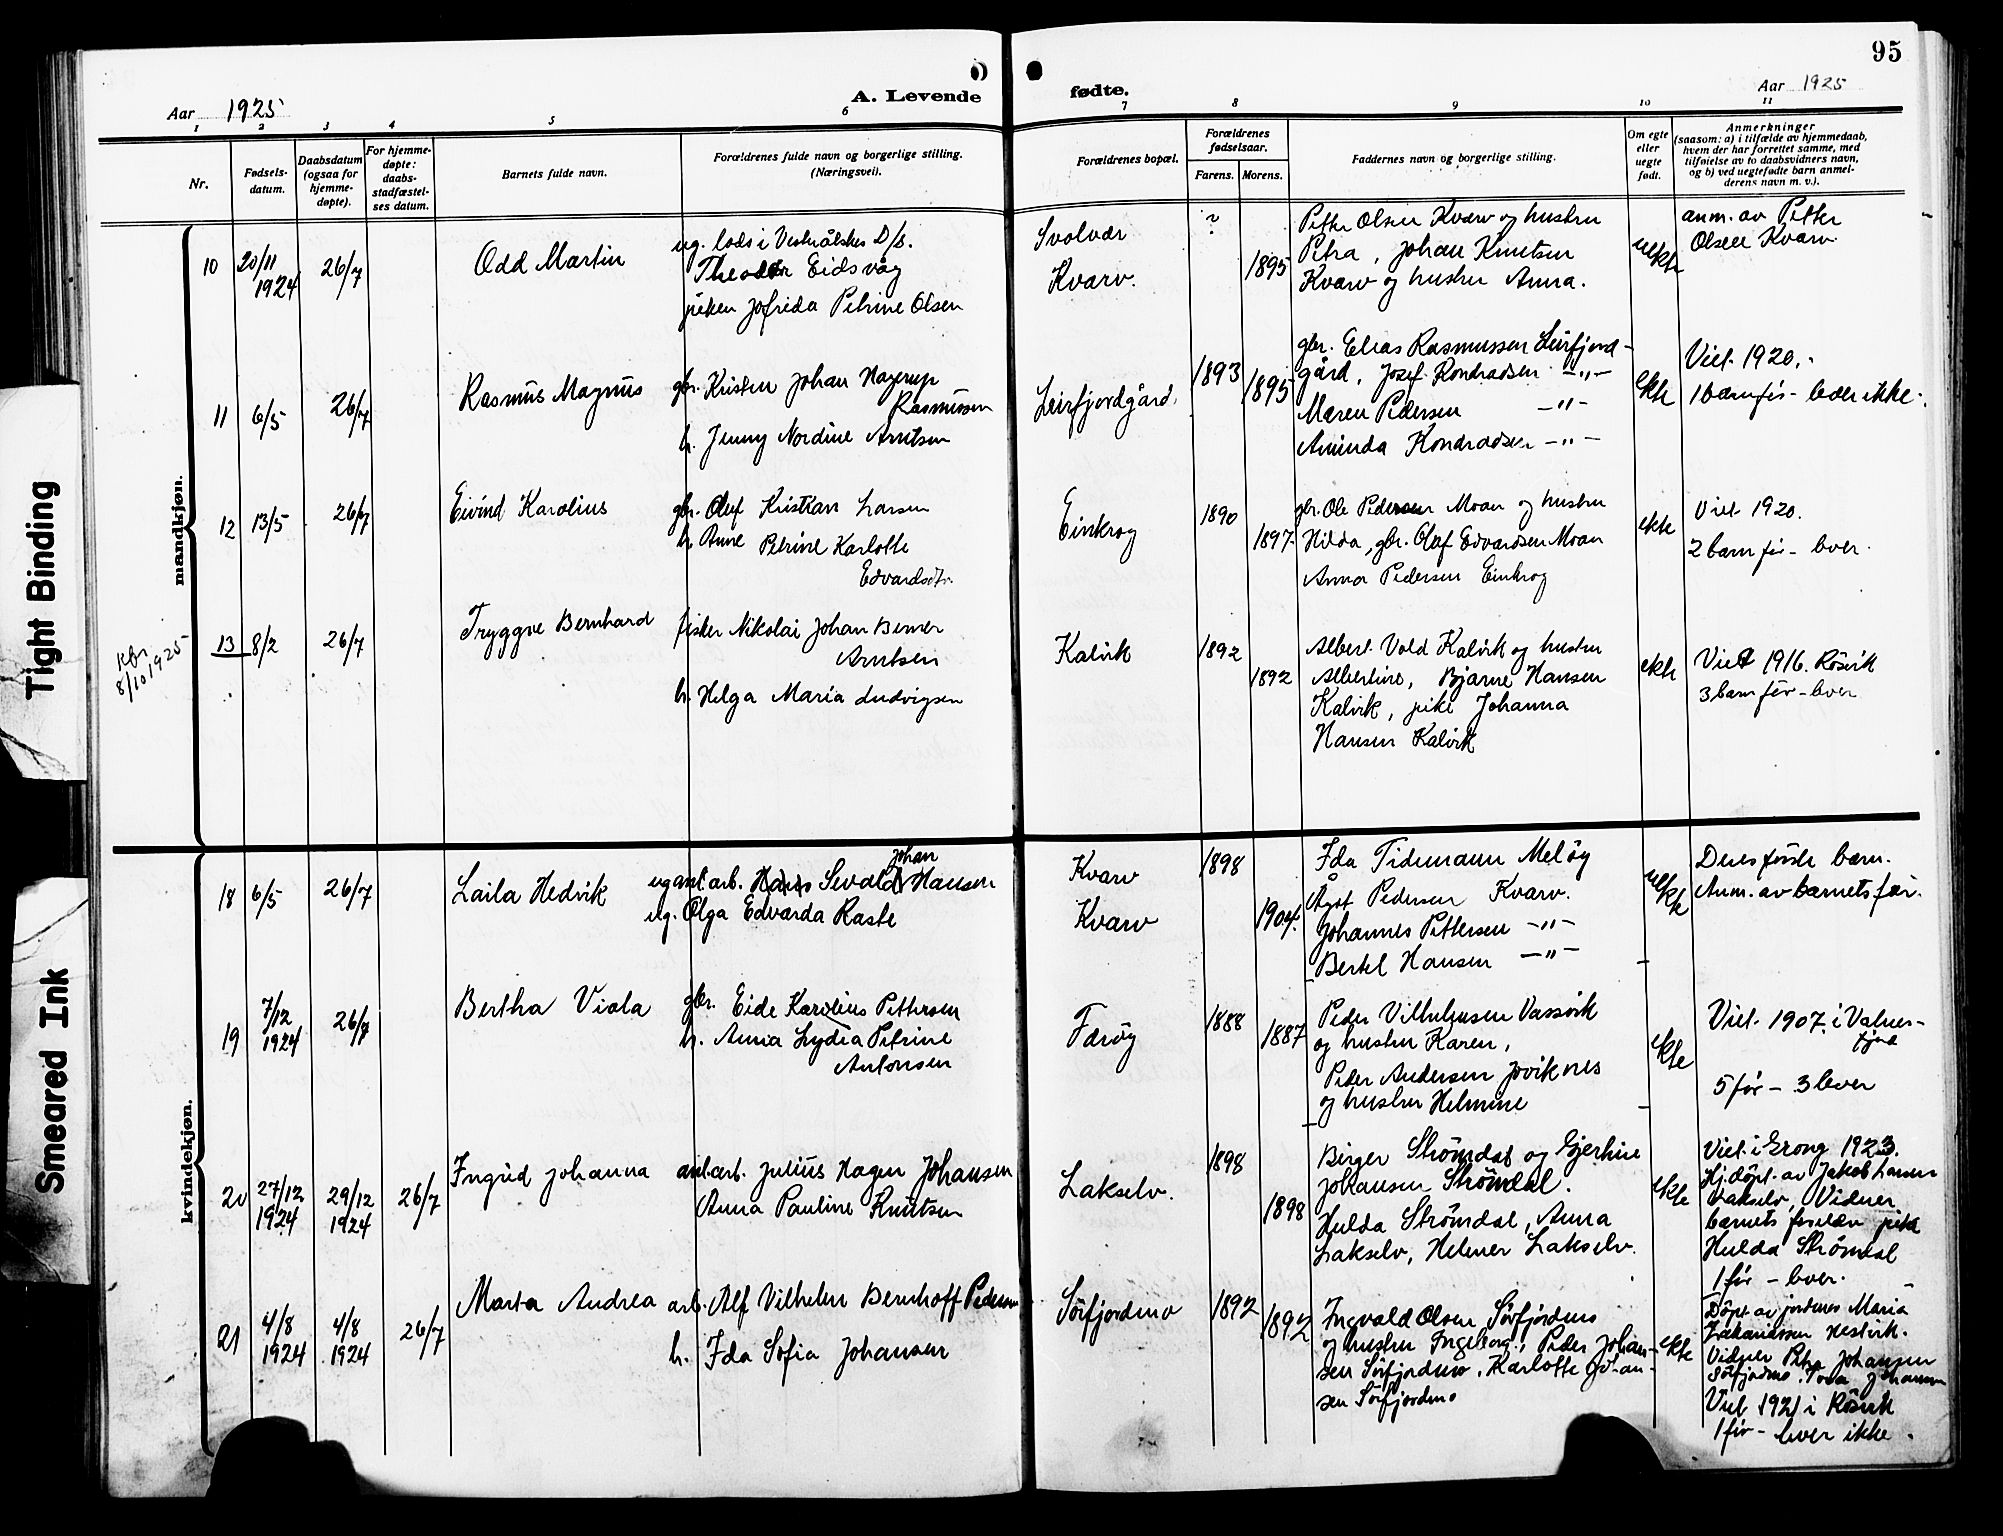 95
Aar 1925
A. Levende
fødte.
Aar 1925
1 2 3 4 5 6 7 8 9 10 11
Nr.
Fødsels-
datum.
Daabsdatum
(ogsaa for
hjemme-
døpte).
For hjemme-
døpte:
daabs-
stadfæstel-
ses datum.
Barnets fulde navn.
Forældrenes fulde navn og borgerlige stilling.
(Næringsvei).
Forældrenes bopæl.
Forældrenes
fødselsaar.
Farens. Morens.
Faddernes navn og borgerlige stilling.
Om egte
eller
uegte
født.
Anmerkninger
(saasom: a) i tilfælde av hjemmedaab,
hvem der har forrettet samme, med
tilføielse av to daabsvidners navn,
og b) ved uegtefødte barn anmel-
derens navn m. v.).
mandkjøn.
10
20/11
1924
26/7
Odd Martin
ug. lods i Vesterålskes D/S.
Theodor Eidsvåg
piken Jofrida Petrine Olsen
Svolvær
Kvarv.
?
1895
Petter Olsen Kvarv og hustru
Petra, Johan Knutsen
Kvarv og hustru Anna.
uekte
anm. av Petter
Olsen Kvarv
11
6/5
26/7
Rasmus Magnus
gbr. Kristen Johan Hagerup
Rasmussen
h. Jenny Nordine Arntsen
Leirfjordgård.
1893
1895
gbr. Elias Rasmussen Leirfjord-
gård, Josef Kondradsen -"-
Maren Pedersen -"-
Aminda Kondradsen -"-
ekte
Viet 1920.
1 barn før - lever ikke.
12
13/5
26/7
Eivind Karolius
gbr. Oluf Kristian Larsen
h. Anne Petrine Karlotte
Edvardsdtr.
Einkrog
1890
1897
gbr. Ole Pedersen Moan og hustru
Hilda, gbr. Olaf Edvardsen Moan
Anna Pedersen Einkrog
ekte
Viet 1920.
2 barn før - lever.
kbr
8/10 1925
13
8/2
26/7
Tryggve Bernhard
fisker Nikolai Johan Berner
Arntsen
h. Helga Maria Ludvigsen
Kalvik
1892
1892
Albert Vold Kalvik og hustru
Albertine, Bjarne Hansen
Kalvik, pike Johanna
Hansen Kalvik
ekte
Viet 1916. Røsvik
3 barn før - lever
kvindekjøn.
18
6/5
26/7
Laila Hedvik
Johan
ug anl. arb. Hans Sevald Hansen
ug. Olga Edvarda Raste
Kvarv
Kvarv
1898
1904.
Ida Tidemann Meløy
Ågot Pedersen Kvarv.
Johannes Pettersen -"-
Bertel Hansen -"-
uekte
Deres første barn.
Anm. av barnets far.
19
7/12
1924
26/7
Bertha Viola
gbr. Eide Karolius Pettersen
h. Anna Lydia Petrine
Antonsen
Færøy
1888
1887
Peder Vilhelmsen Vassvik
og hustru Karen,
Peder Andersen Jvviknes
og hustru Helmine
ekte
Viet 1907 i Valnes-
fjord
5 før - 3 lever
20
27/12
1924
29/12
1924
26/7
Ingrid Johanna
anl. arb. Julius Hagen Johansen
Anna Pauline Knutsen
Lakselv.
1898
1898
Birger Strømdal og Gjertine
Johansen Strømdal.
Hulda Strømdal, Anna
Lakselv, Helmer Lakselv.
ekte
Viet i Grong 1923.
Hj.døpt. av Jakob Larsen
Lakselv, Vidner
barnets forældre pike
Hulda Strømdal
1 før - lever.
21
4/8
1924
4/8
1924
26/7
Marta Andrea
arb. Alf Vilhelm Bernhoff Pedersen
h. Ida Sofia Johansen
Sørfjordmo
1892
1892
Ingvald Olsen Sørfjordmo
og hustru Ingeborg, Peder Johan-
sen Sørfjordmo, Karlotte Johan-
sen Sørfjordmo
ekte
Døpt av jordmor Maria
Zakariassen Hestvik.
Vidner Petra Johansen
Sørfjordmo, Tova Johansen
Viet 1921 i Røsvik
1 før - lever ikke.
Tight Binding
Smeared Ink